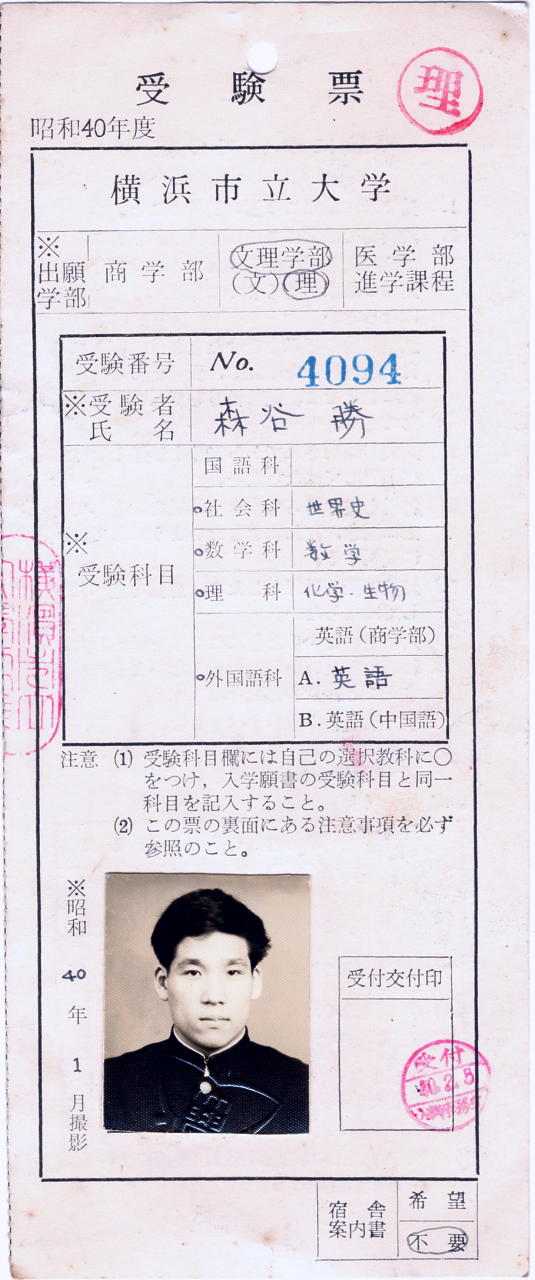 受験票
理
昭和40年度
横浜市立大学
※出願学部
商学部
文理学部
(文)(理)
医学部
進学課程
受験番号 No. 4094
※受験者氏名 森谷 勝
※受験科目
国語科
○社会科 世界史
○数学科 数学
○理科 化学・生物
○外国語科
英語(商学部)
A. 英語
B. 英語(中国語)
注意 (1) 受験科目欄には自己の選択教科に○
をつけ,入学願書の受験科目と同一
科目を記入すること。
(2) この票の裏面にある注意事項を必ず
参照のこと。
※昭和40年1月撮影
受付交付印
受付
40.2.5
宿舎
案内書
希望
不要